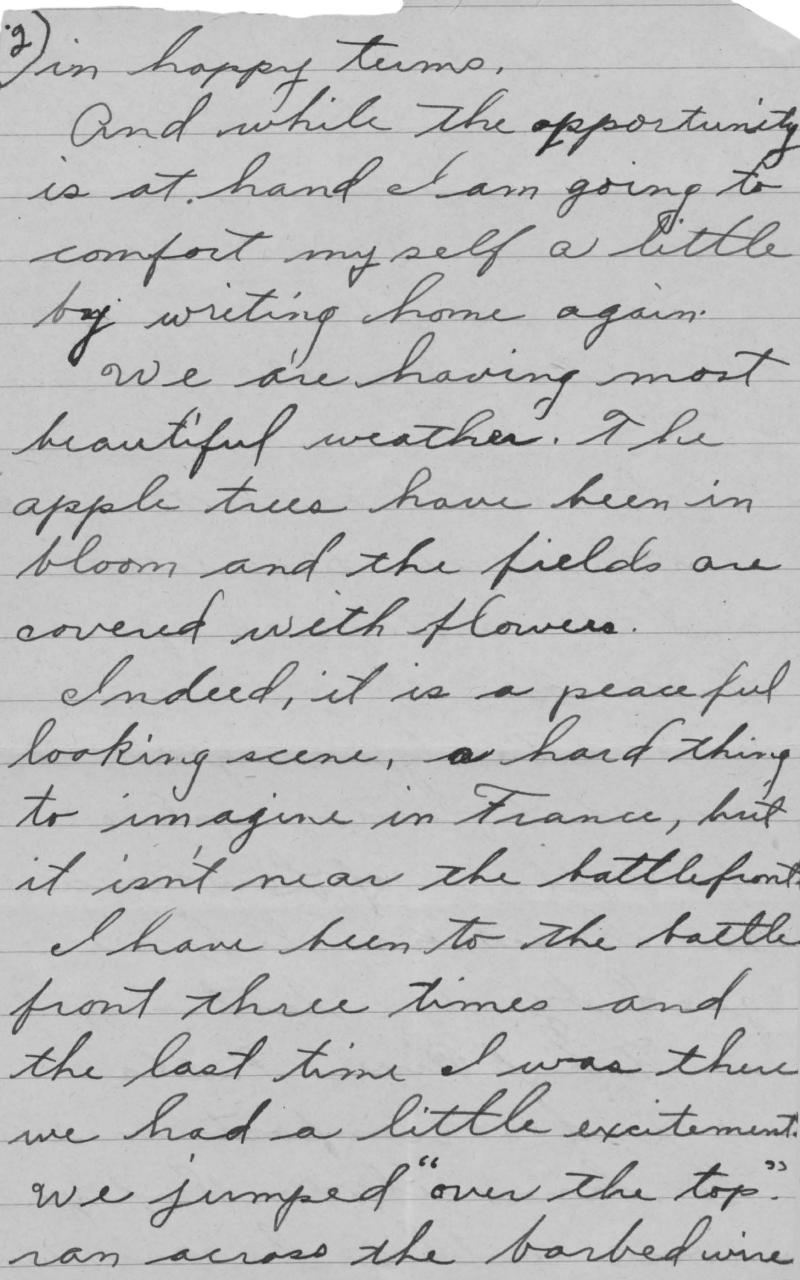 2) in happy terms.
And while the opportunity
is at hand I am going to
comfort my self a little
by writing home again.
We are having most
beautiful weather. The
apple trees have been in
bloom and the fields are
covered with flowers.
Indeed, it is a peaceful
looking scene, a hard thing
to imagine in France, but
it isn't near the battlefront.
I have been to the battle
front three times and
the last time I was there
we had a little excitement.
We jumped "over the top".
ran across the barbed wire